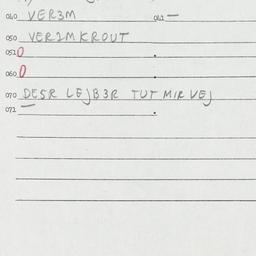 040 VER3M 042 —
050 VER2MKROUT
052 0 .
060 0
070 DE5R LEJB3R TUT MIR VEJ
072 — .